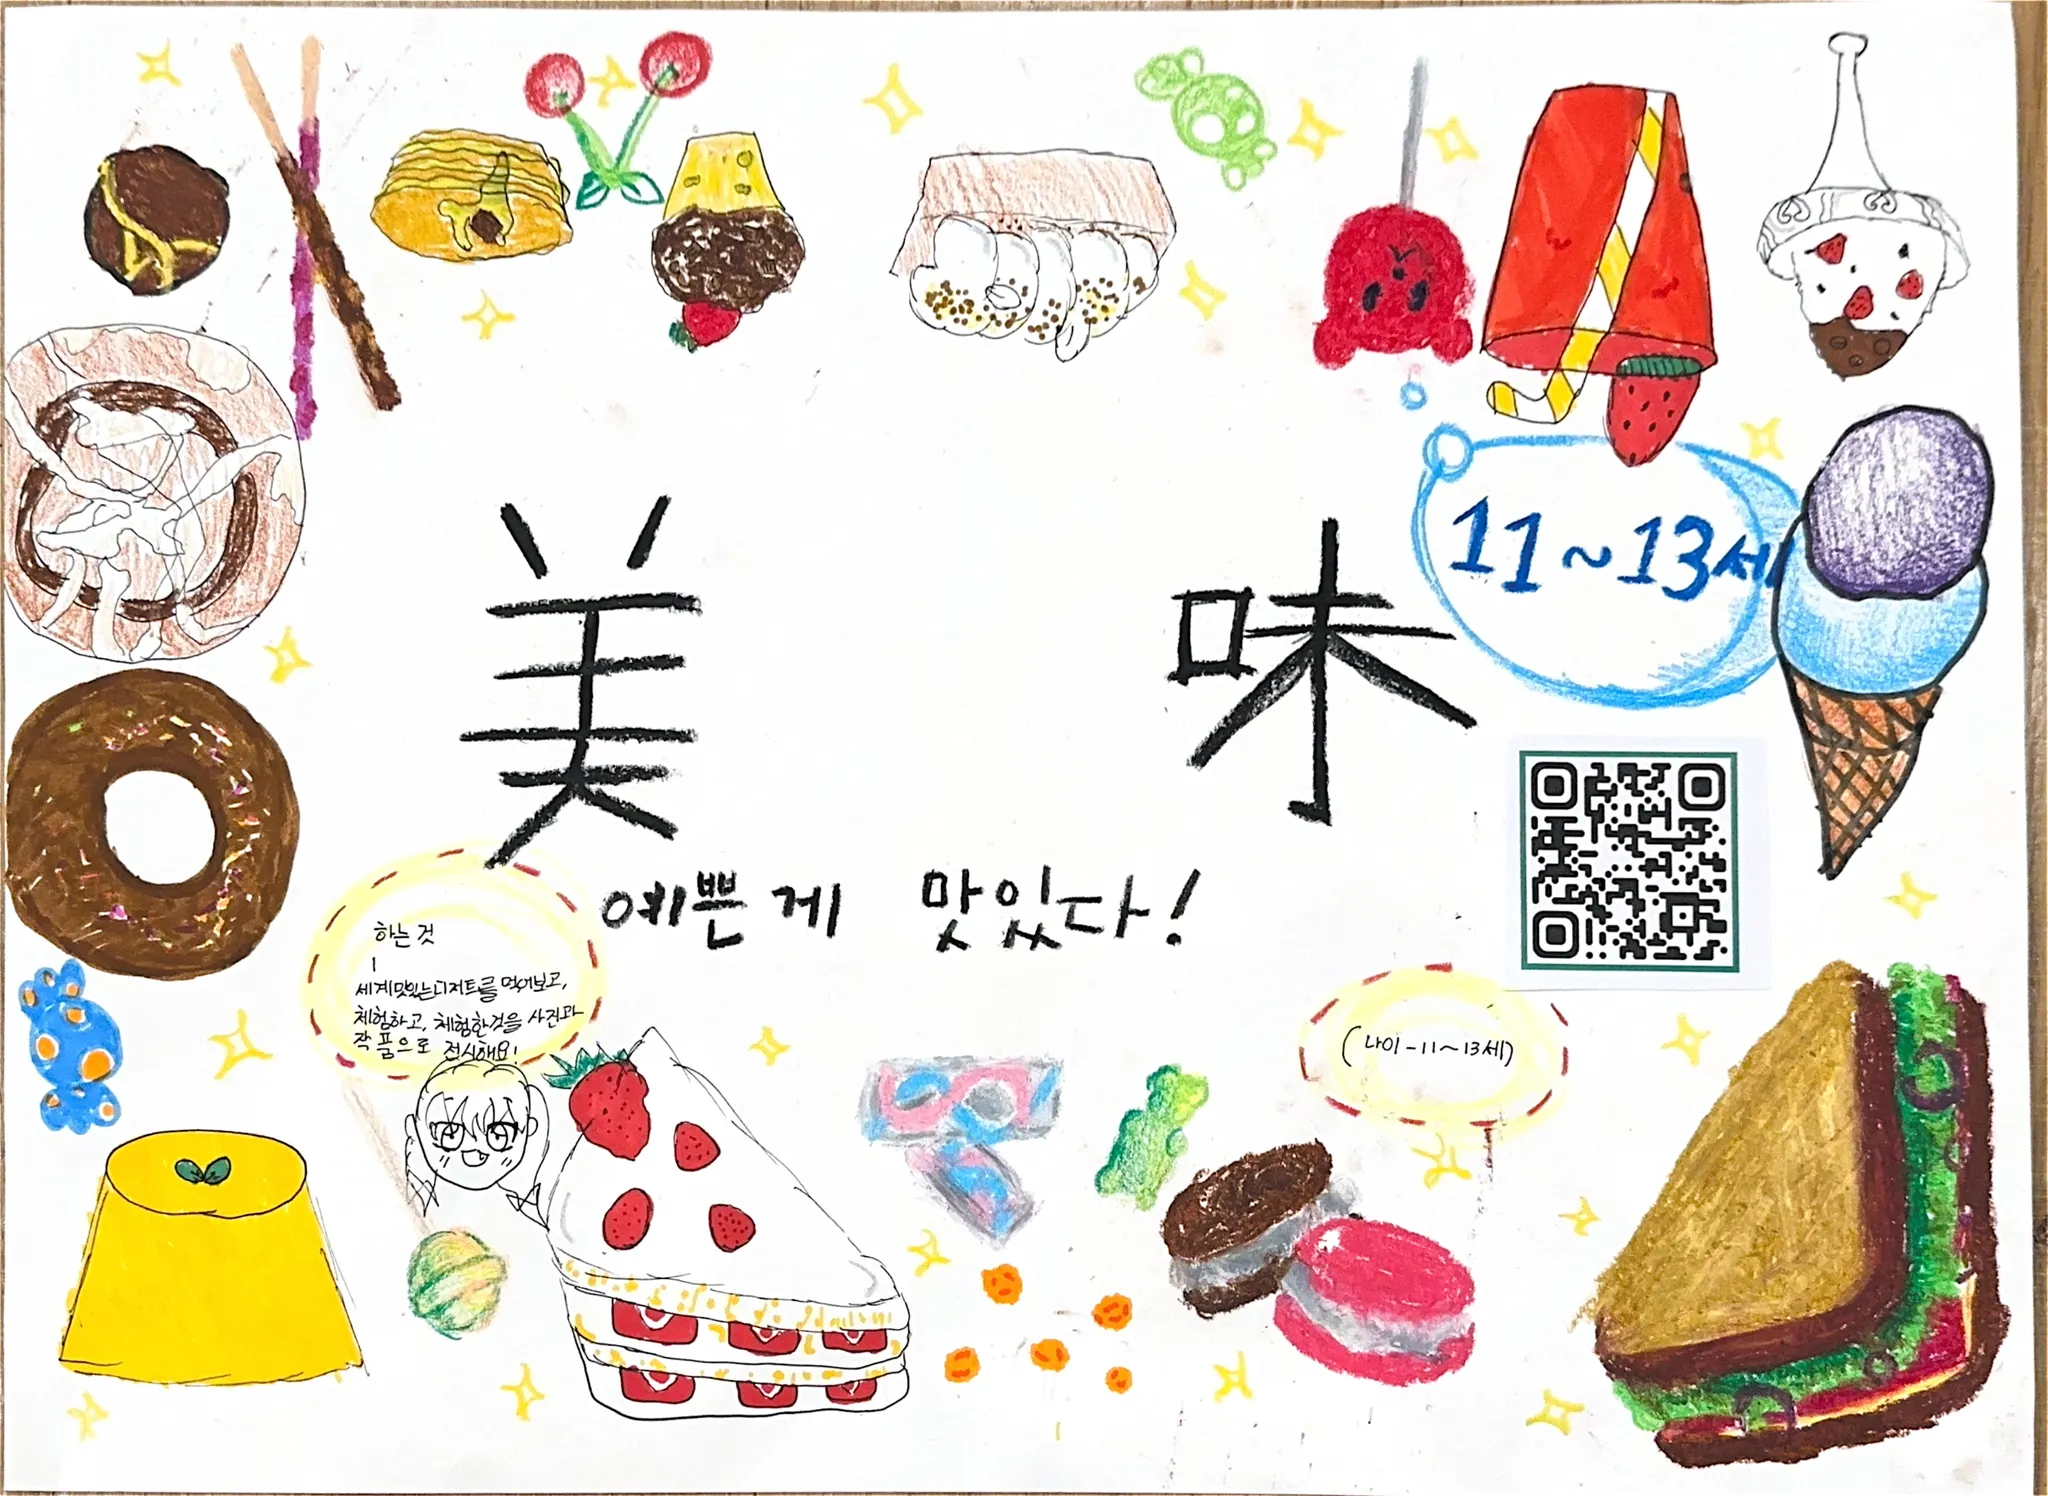 美 味
11~13세
예쁜게 맛있다!
하는 것
세계맛있는디저트를 먹어보고,
체험하고, 체험한것을 사진과
작품으로 전시해요!
(나이-11~13세)